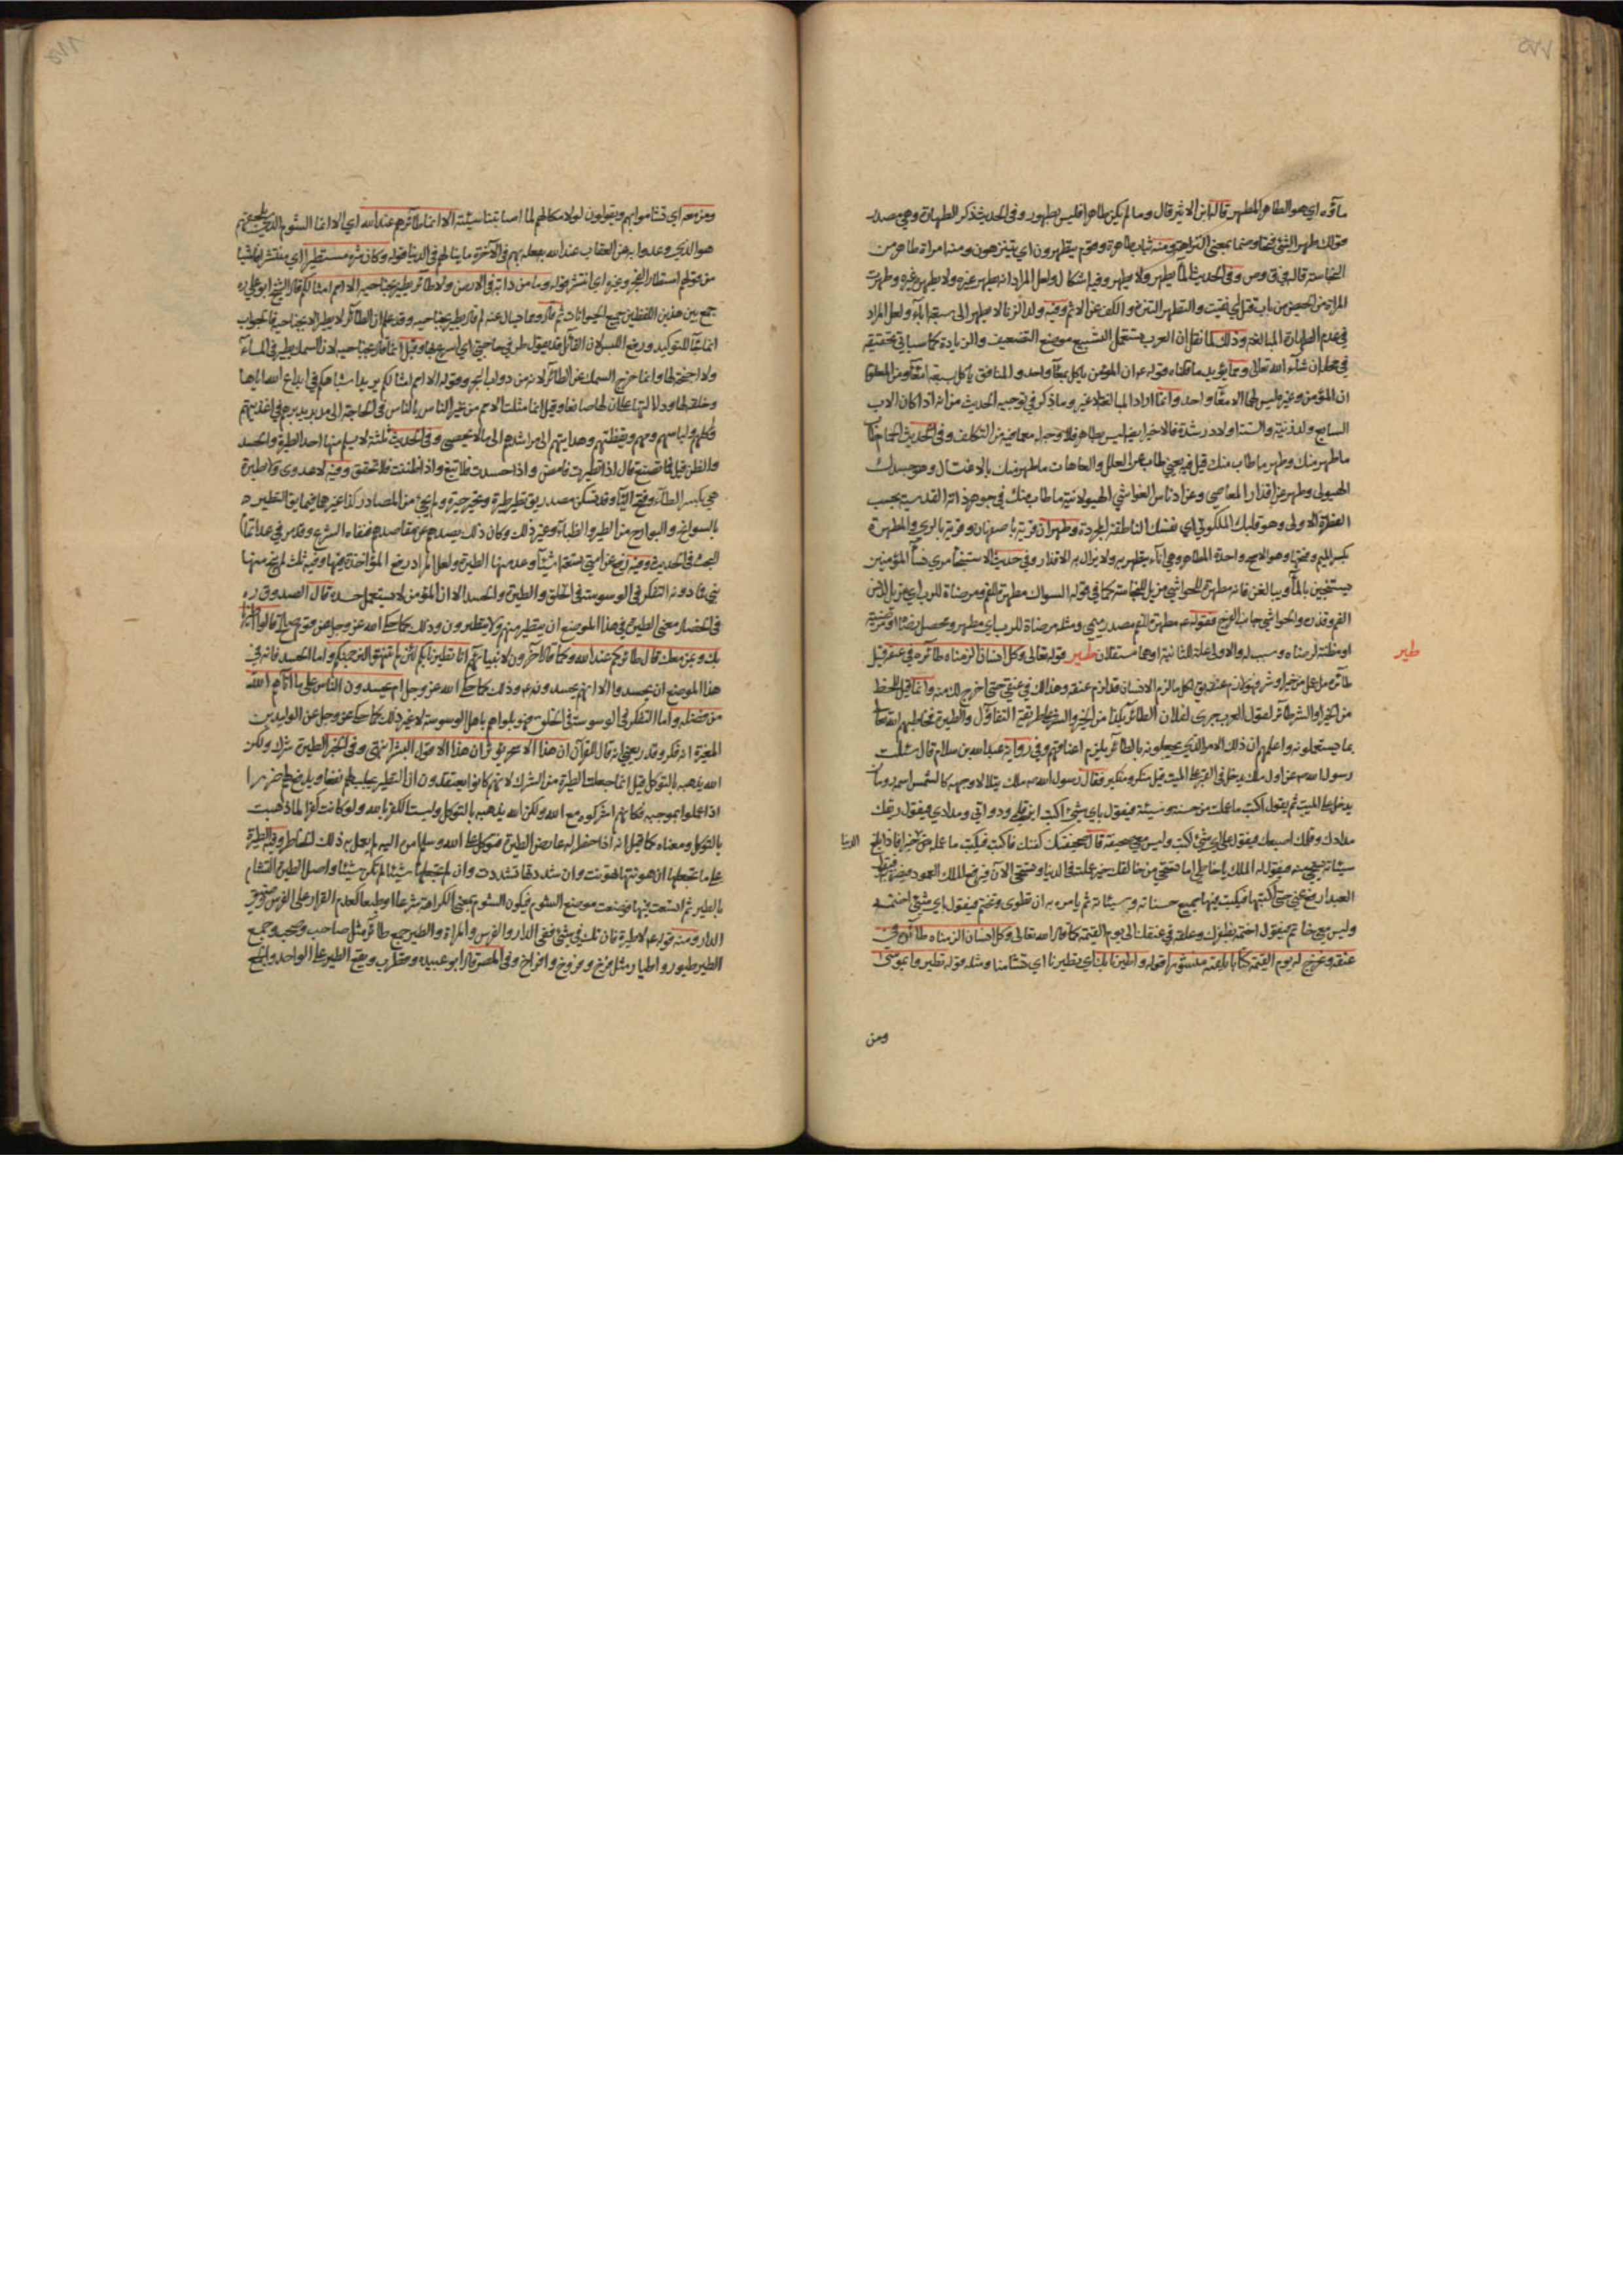 ماؤه اي هو الطاهر المطهر قاله ابن الاثير قال وما لم يكن طاهرا فليس بطهور وفي الحديث ذكر الطهارة وهي مصدر
قولك طهر الشئ فتحا وضما بمعنى النزاهة ومنه ثياب طاهرة وقوم يتطهرون اي يتنزهون ومنه امراة طاهر من
النجاسة قاله في ق وص وفي الحديث الماء يطهر ولا يطهر وفيه اشكال ولعل المراد انه يطهر غيره ولا يطهره غيره وطهرت
المراة من الحيض من باب قتل نقيت والتطهر التنزه والكف عن الاثم وفيه ولد الزنا لا يطهر الى سبعة آباء ولعل المراد
في عدم الطهارة المبالغة وذلك لما نقل ان العرب تستعمل التسبيع موضع التضعيف والزيادة كما سياتي تحقيقه
في محله ان شاء الله تعالى ومما يؤيد ما قلناه قوله ع ان المؤمن ياكل بمعاء واحد والمنافق ياكل بسبعة امعاء ومن المعلوم
ان المؤمن وغيره ليس لهما الا معا واحد وانما اراد المبالغة لا غير وما ذكر في توجيه الحديث من انه اذا كان الاب
السابع ولد زنية والستة اولاد رشدة فالاخير ايضا ليس بطاهر فلا وجه له مع ما فيه من التكلف وفي الحديث
ما طهر منك وطهر ما طاب منك قيل فيه يعني طاب عن العلل والعاهات ما طهر منك بالاغتسال وهو جسدك
الهيولى وطهر عن اقذار المعاصي وعن ادناس الغواشي الهيولانية ما طاب منك في جوهر ذاته القدسية بحسب
الفطرة الاولى وهو قلبك الملكوتي اي نفسك الناطقة المجردة وطهران قرية باصبهان وقرية بالري والمطهرة
بكسر الميم وفتحها وهو الافصح واحدة المطاهر وهي اناء يتطهر به ولا يزال به الاقذار وفي حديث الاستنجاء مري نساء المؤمنين
يستنجين بالماء ويبالغن فانه مطهرة للحواشي مزيل للنجاسة كما في قوله السواك مطهرة للفم ومرضاة للرب اي مزيل لدنس
الفم وقذره والحواشي جانب الفرج فقوله ع مطهرة للفم مصدر ميمي ومثله مرضاة للرب اي مطهر ومحصل رضاه او مرضية
او مظنة لرضاه وسبب له والاولى علة للثانية او هما مستقلان طير قوله تعالى وكل انسان الزمناه طائره في عنقه قيل
طائره ما عمل من خير او شر فهو لازم عنقه يقال لكل ما لزم الانسان قد لزم عنقه وهذا لك في عنقي حتى اخرج لك منه وانما قيل للحظ
من الخير او الشر طائر لقول العرب جرى لفلان الطائر بكذا من الخير والشر على طريقة التفاؤل والطيرة فخاطبهم الله تعالى
بما يستعملونه واعلمهم ان ذلك الامر الذي يجعلونه بالطائر يلزم اعناقهم وفي رواية عبدالله بن سلام قال سئلت
رسول الله ص عن اول ملك يدخل في القبر على الميت قبل منكر ونكير فقال رسول الله ص ملك يتلالا وجهه كالشمس اسمه رومان
يدخل على الميت ثم يقول اكتب ما عملت من حسنة وسيئة فيقول باي شئ اكتب اين قلمي ودواتي ومدادي فيقول ريقك
مدادك وقلمك اصبعك فيقول على اي شئ اكتب وليس معي صحيفة قال صحيفتك كفنك فاكتب فيكتب ما عمله من خير فاذا بلغ
الدنيا
سيئاته يستحي منه فيقول له الملك يا خاطي اما تستحي من خالقك حين عملته في الدنيا وتستحي الآن فيرفع الملك العمود ليضربه فيقول
العبد ارفع عني حتى اكتبها فيكتب فيها جميع حسناته وسيئاته ثم يامره ان تطوى وتختم فيقول اي شئ اختمه
وليس معي خاتم فيقول اختمه بظفرك وعلقه في عنقك الى يوم القيمة كما قال الله تعالى وكل انسان الزمناه طائره في
عنقه ونخرج له يوم القيمة كتابا يلقيه منشورا قوله واطيرنا بك اي تطيرنا اي تشامنا ومثله قوله تطيروا بموسى
ومن
طير
ومن معه اي تشاموا بهم ويقولون لولا مكانهم لما اصابتنا سيئة الا انما طائرهم عند الله اي الا انما الشوم الذي يلحقهم
هو الذي وعدوا به من العقاب عند الله يفعله بهم في الآخرة لا ما ينالهم في الدنيا قوله وكان شره مستطيرا اي منتشرا فاشيا
من قولهم استطار الفجر وغيره اي انتشر قوله وما من دابة في الارض ولا طائر يطير بجناحيه الا امم امثالكم قال الشيخ ابو علي ره
جمع بين هذين اللفظين جميع الحيوانات ثم قال ومما يسال عنه لم قال يطير بجناحيه وقد علم ان الطائر لا يطير الا بجناحيه فالجواب
انما جاء للتوكيد ورفع اللبس لان القائل قد يقول طر في حاجتي اي اسرع فيها وقيل انما قال بجناحيه لان السمك يطير في الماء
ولا اجنحة لها وانما خرج السمك عن الطائر لانه من دواب البحر وقوله الا امم امثالكم يريد اشباهكم في ابداع الله اياها
وخلقه لها ودلالتها على ان لها صانعا وقيل انما مثلت الامم من غير الناس بالناس في الحاجة الى مدبر يدبرهم في اغذيتهم
واكلهم ولباسهم ونومهم ويقظتهم وهدايتهم الى مراشدهم الى ما لا يحصى وفي الحديث ثلثة لا يسلم منها احد الطيرة والحسد
والظن قيل فما نصنع قال اذا تطيرت فامض واذا حسدت فلا تبغ واذا ظننت فلا تحقق وفيه لا عدوى ولا طيرة
هي بكسر الطاء وفتح الياء وقد تسكن مصدر يق تطير طيرة وتخير خيرة ولم يجئ من المصادر كذا غيرهما فيما يق التطير
بالسوانح والبوارح من الطير والظباء وغير ذلك وكان ذلك يصدهم عن مقاصدهم فنفاه الشرع وقد مر في عدا تمام
البحث في الحديث وفيه رفع عن امتي تسعة اشياء وعد منها الطيرة ولعل المراد رفع المؤاخذة فيها وفيه ثلث لم ينج منها
نبي فما دونه التفكر في الوسوسة في الخلق والطيرة والحسد الا ان المؤمن لا يستعمل حسده قال الصدوق ره
في الخصال معنى الطيرة في هذا الموضع ان يتطير منهم ولا يتطيرون وذلك كما حكى الله عز وجل عن قوم صالح قالوا اطيرنا
بك وبمن معك قال طائركم عند الله وكما قال آخرون لانبيائهم انا تطيرنا بكم لئن لم تنتهوا لنرجمنكم واما الحسد فانه في
هذا الموضع ان يحسدوا لا انهم يحسدون غيرهم وذلك كما حكى الله عز وجل ام يحسدون الناس على ما آتاهم الله
من فضله واما التفكر في الوسوسة في الخلق فهو بلواهم باهل الوسوسة لا غير ذلك كما حكى عز وجل عن الوليد بن
المغيرة انه فكر وقدر يعني انه قال للقرآن ان هذا الا سحر يؤثر ان هذا الا قول البشر انتهى وفي الخبر الطيرة شرك ولكن
الله يذهبه بالتوكل قيل انما جعلت الطيرة من الشرك لانهم كانوا يعتقدون ان التطير يجلب لهم نفعا ويدفع عنهم ضررا
اذا عملوا بموجبه فكانهم اشركوه مع الله ولكن الله يذهبه بالتوكل وليست الكفر بالله ولو كانت كفرا لما ذهبت
بالتوكل ومعناه كما قيل انه اذا خطر له عارض الطيرة فتوكل على الله وسلم امره اليه لم يعمل به ذلك الخاطر وفيه الطيرة
على ما تجعلها ان هونتها تهونت وان شددتها تشددت وان لم تجعلها شيئا لم تكن شيئا واصل الطيرة التشام
بالطير ثم اتسعت فيها فوضعت موضع الشوم فيكون الشوم بمعنى الكراهة شرعا او طبعا كعدم القرار على الفرس وضيق
الدار ومنه قوله ع لا طيرة فان تك في شئ ففي الدار والفرس والمراة والطير جمع طائر مثل صاحب وصحب وجمع
الطير طيور واطيار مثل فرخ وفروخ وافراخ وفي المصر قال ابو عبيدة وقطرب ويقع الطير على الواحد والجمع